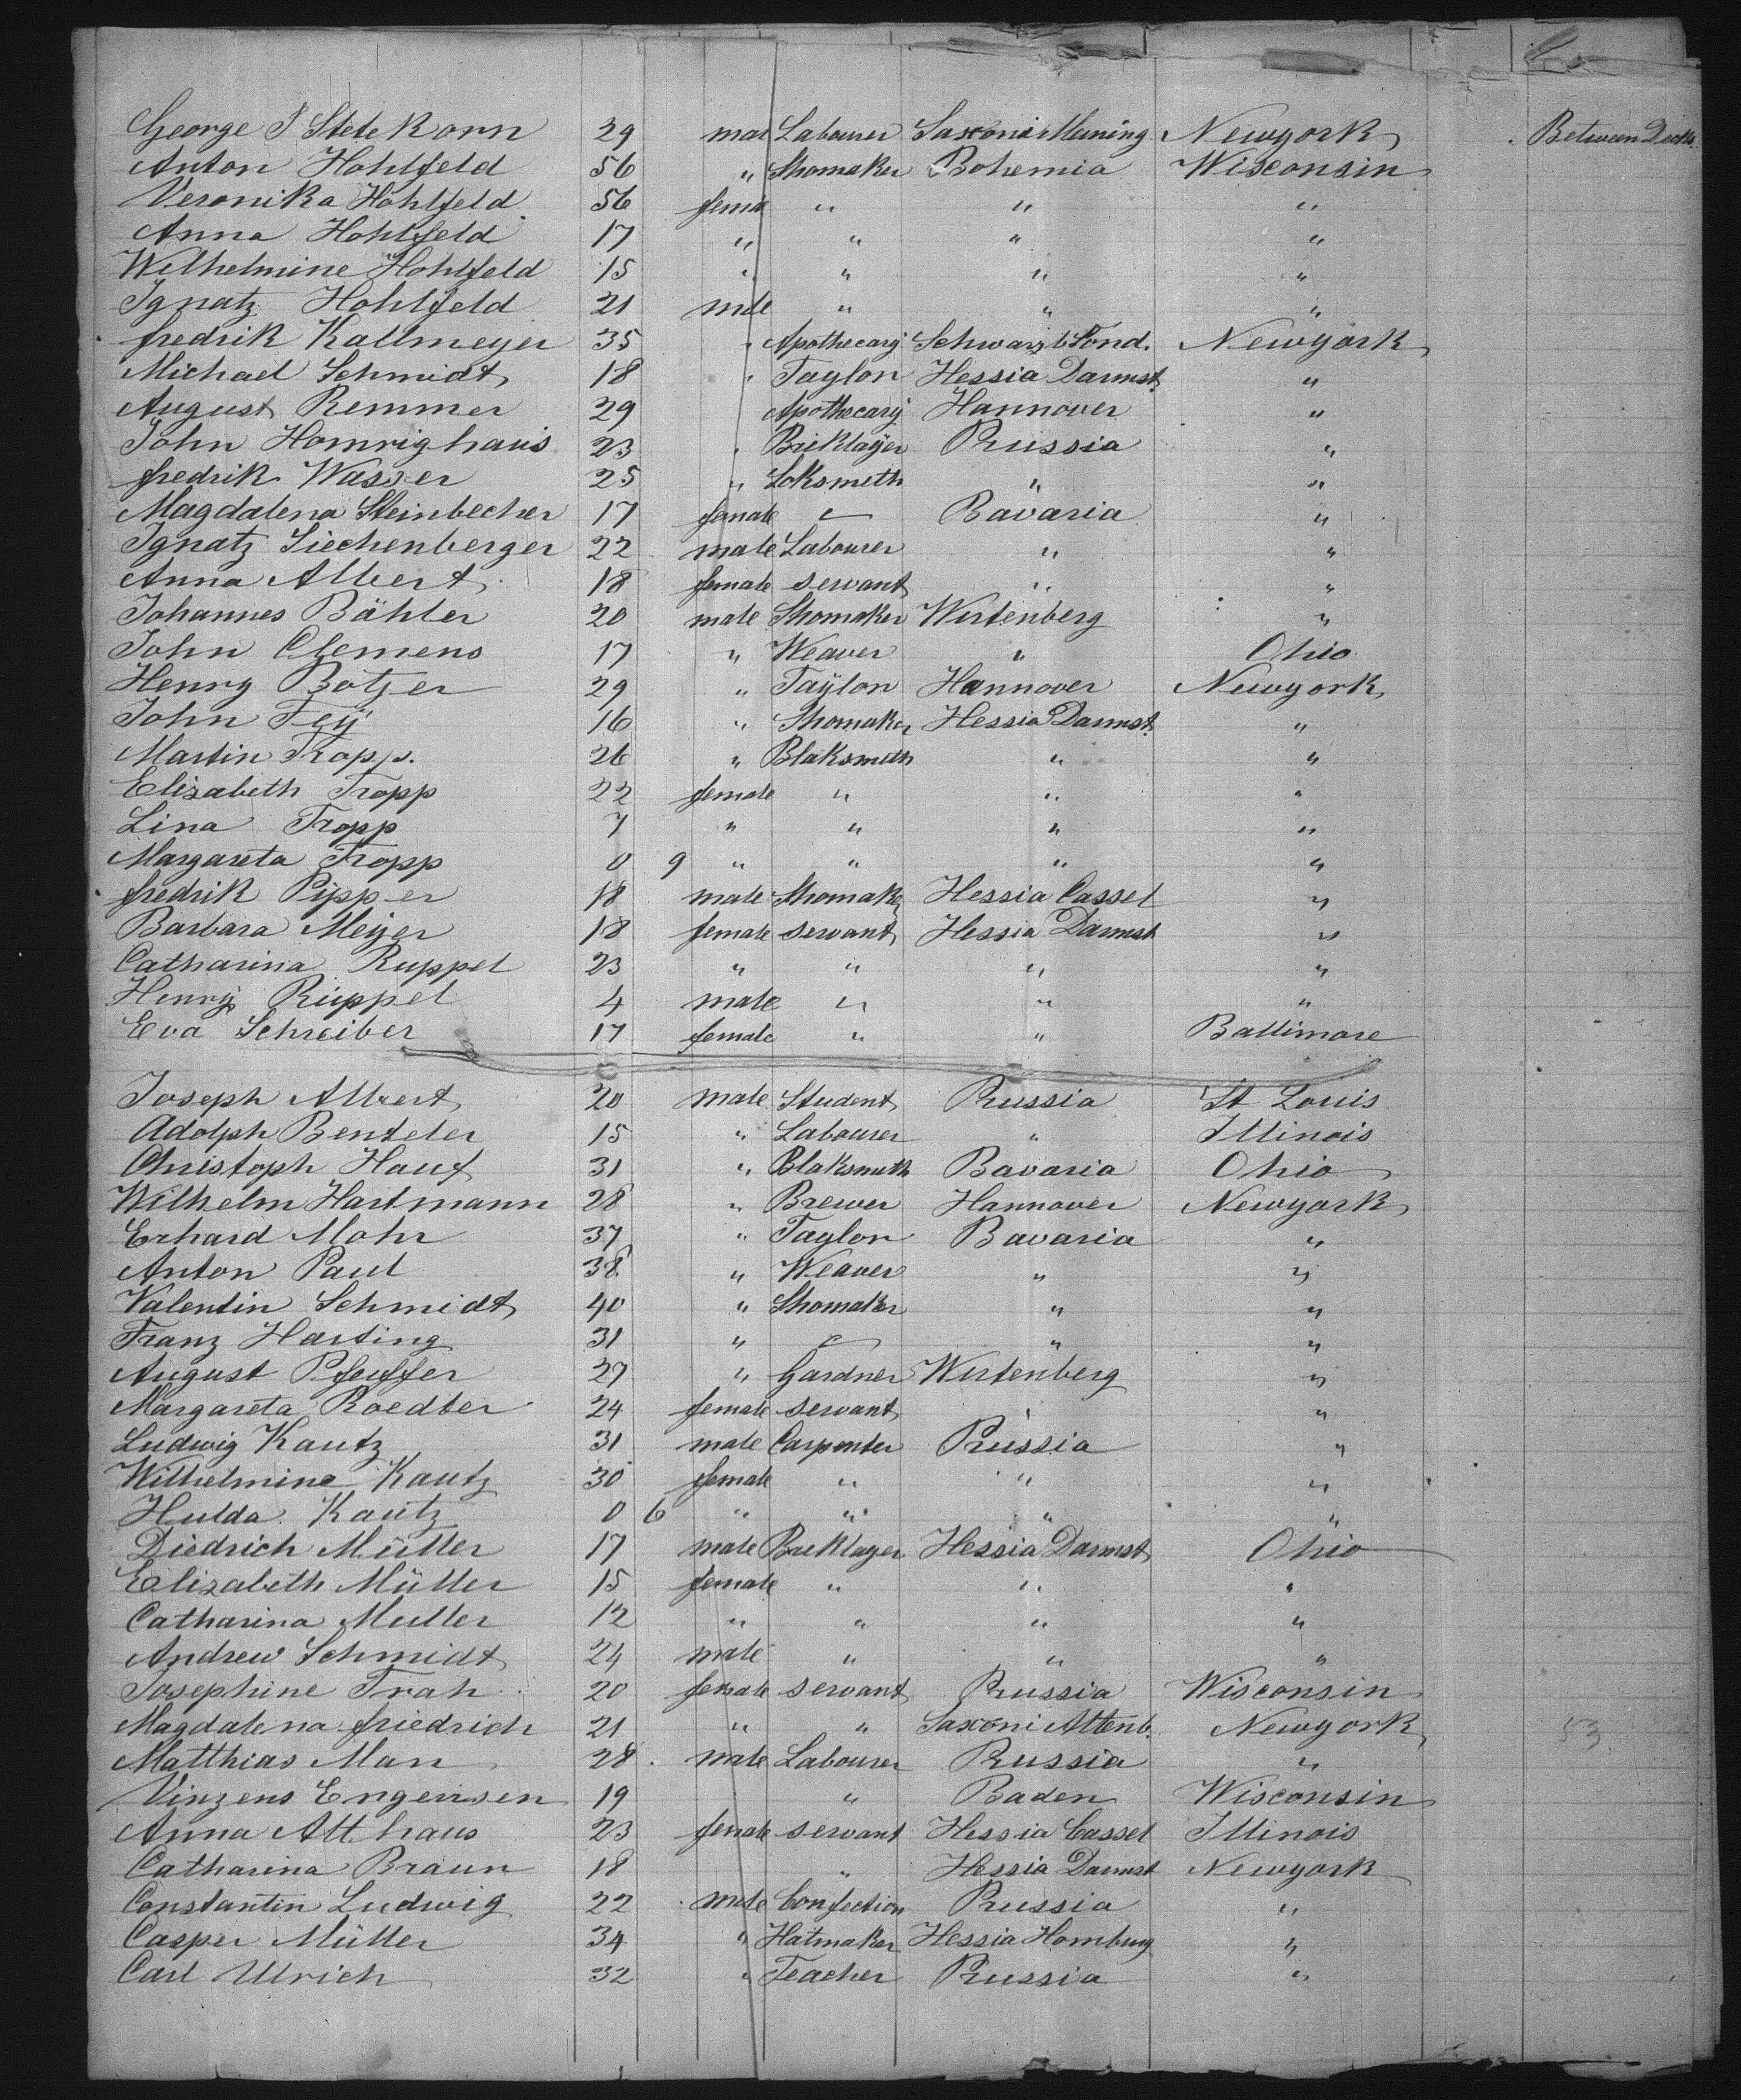 George S Stetekorn 29 mal Labourer Saxoni Meining. Newyork Between Decks
Anton Hohlfeld 56 " Shomaker Bohemia Wisconsin
Veronika Hohlfeld 56 fema " " "
Anna Hohlfeld 17 " " " "
Wilhelmine Hohlfeld 15 " " " "
Ignatz Hohlfeld 21 male " " "
fredrik Kallmeyer 35 " Apothecary Schwarzb Sond. Newyork
Michael Schmidt 18 " Taylon Hessia Darmst "
August Remmer 29 Apothecary Hannover "
John Homrighaus 23 " Briklayer Prussia "
fredrik Wasser 25 " Loksmeth " "
Magdalena Steinbecher 17 female — Bavaria "
Ignatz Liechenberger 22 male Labourer " "
Anna Albert 18 female servant " "
Johannes Bähler 20 male Shomaker Wirtenberg "
John Clemens 17 " Weaver " Ohio
Henry Botzer 29 " Taylon Hannover Newyork
John Feÿ 16 " Shomaker Hessia Darmst "
Martin Tropp. 26 " Blaksmeth " "
Elizabeth Tropp 22 female " " "
Lina Tropp 7 " " " "
Margareta Tropp 0 9 " " " "
fredrik Pipper 18 male Shomaker Hessia Cassel "
Barbara Meijer 18 female servant Hessia Darmst "
Catharina Ruppel 23 " " " "
Henry Ruppel 4 male " " "
Eva Schreiber 17 female " " Baltimore
Joseph Albert 20 male Student Prussia St Louis
Adolph Benteler 15 " Labourer " Illinois
Christoph Hauf 31 " Blaksmeth Bavaria Ohio
Wilhelm Hartmann 28 " Brewer Hannover Newyork
Erhard Mohr 37 " Taylon Bavaria "
Anton Paul 38 " Weaver " "
Valentin Schmidt 40 " Shomaker " "
Franz Harting 31 " — " "
August Pfeuffer 27 " Gardner Wirtenberg "
Margareta Roedter 24 female servant " "
Ludwig Kautz 31 male Carpenter Prussia "
Wilhelmine Kautz 30 female " " "
Hulda Kautz 0 6 " " " "
Diedrich Müller 17 male Briklayer Hessia Darmst Ohio
Elizabeth Müller 15 female " " "
Catharina Muller 12 " " " "
Andrew Schmidt 24 male " " "
Josephine Trah 20 female servant Prussia Wisconsin
Magdalena friedrich 21 " " Saxoni Altenb. Newyork 53
Matthias Man 28 male Labourer Prussia "
Vinzens Engensen 19 " Baden Wisconsin
Anna Althaus 23 female servant Hessia Cassel Illinois
Catharina Braun 18 " Hessia Darmst Newyork
Constantin Ludwig 22 male Confection Prussia "
Casper Müller 34 " Hatmaker Hessia Homburg "
Carl Ulrich 32 " Teacher Prussia "